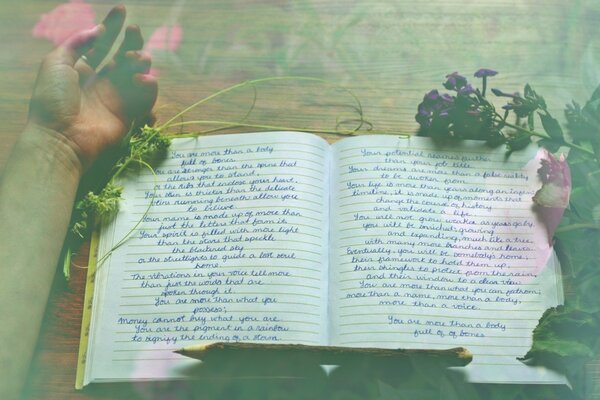 You are more than a body
full of bones.
You are stronger than the spine that
allows you to stand,
or the ribs that enclose your heart.
Your skin is thicker than the delicate
veins running beneath allow you
to believe.
Your name is made up of more than
just the letters that form it.
Your spirit is filled with more light
than the stars that speckle
the blackened sky
or the streetlights to guide a lost soul
home.
The vibrations in your voice tell more
than just the words that are
spoken through it.
You are more than what you
possess;
Money cannot buy what you are.
You are the pigment in a rainbow
to signify the ending of a storm.
Your potential reaches further
than your tell-
Your dreams are more than a false reality
to be kept asleep.
Your life is more than years along an
timeline, it is made up of moments that
change the course of history
and validate a life.
You will not grow weaker as years go by,
you will be enriched, growing
and expanding, much like a tree,
with many more branches and leaves.
Eventually, you will be somebody's home,
their framework to hold them up,
their shingles to protect from the rains,
and their window to a clear day.
You are more than what you can fathom,
more than a name, more than a body,
more than a voice.
You are more than a body
full of of bones